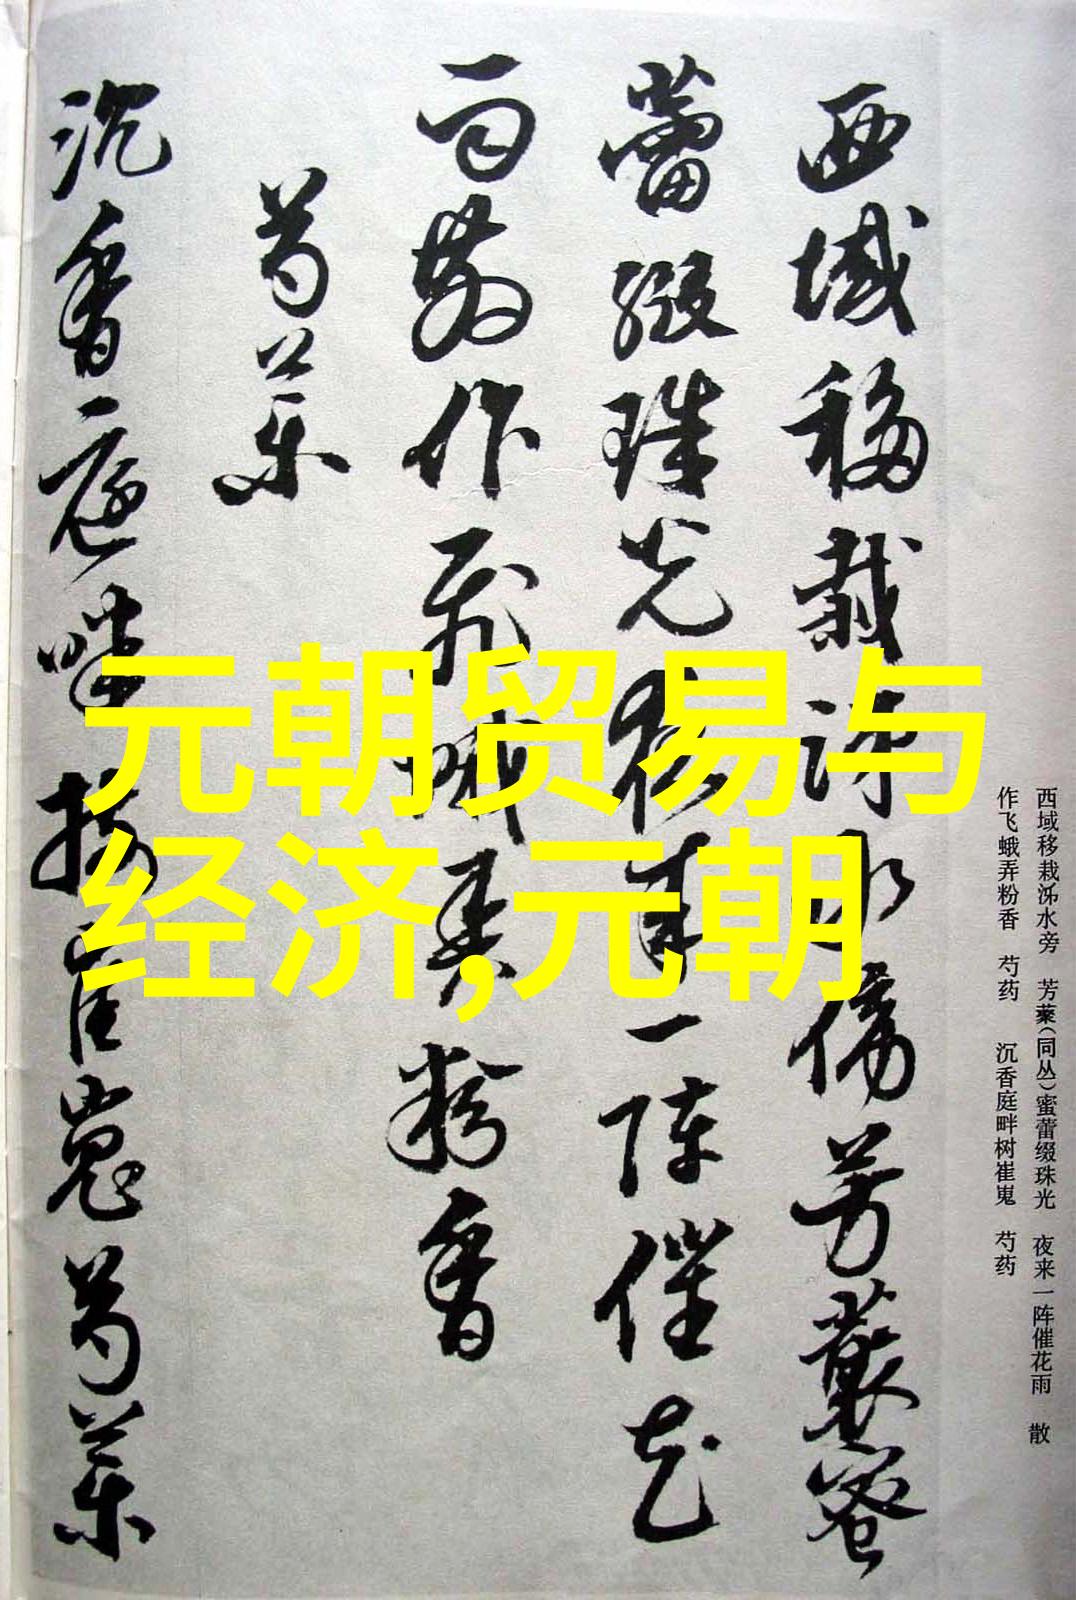 西域移栽泺水傍芳藂蜜
蕾缀珠光夜来一阵催花
雨散作飞蛾弄粉香
芍药
沉香庭畔树崔嵬芍药
元朝贸易与
经济,元朝
西域移栽泺水旁　芳藂(同丛)蜜蕾缀珠光　夜来一阵催花雨　散
作飞蛾弄粉香　芍药　沉香庭畔树崔嵬　芍药